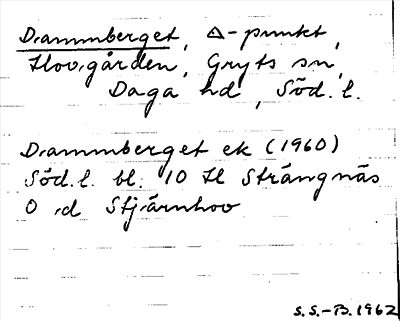 Drammberget, △-punkt,
Hovgården, Gryts sn,
Daga hd, Söd. l.
Drammberget ek (1960)
Söd. l. bl. 10 H Strängnäs
O id Stjärnhov
S.S.-B. 1962